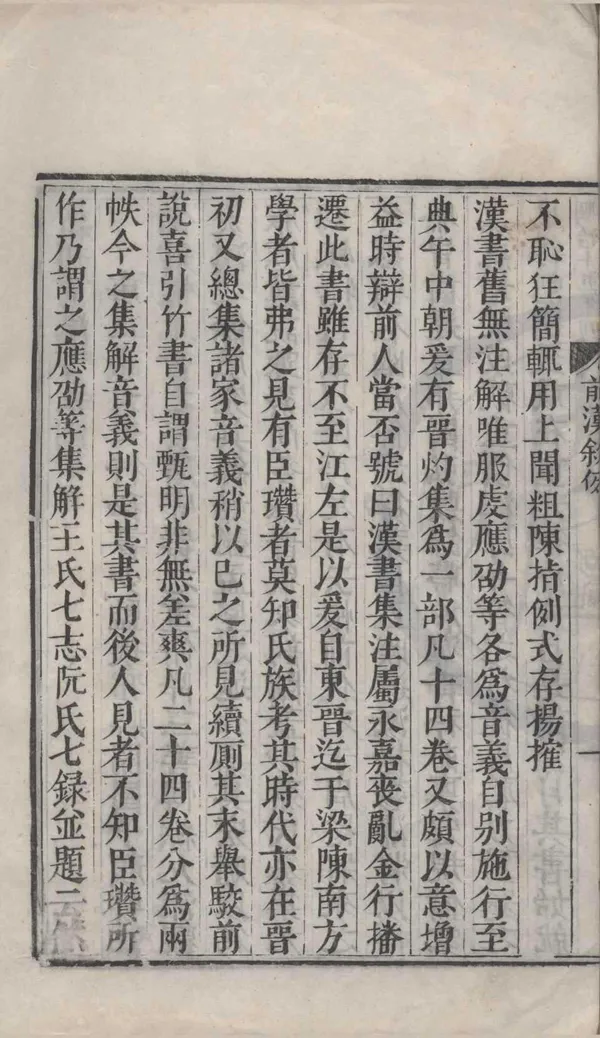 前漢敘例
一
不恥狂簡輒用上聞粗陳指例式存揚搉
漢書舊無注解唯服虔應劭等各爲音義自別施行至
典午中朝爰有晉灼集爲一部凡十四卷又頗以意增
益時辯前人當否號曰漢書集注屬永嘉喪亂金行播
遷此書雖存不至江左是以爰自東晉迄于梁陳南方
學者皆弗之見有臣瓚者莫知氏族考其時代亦在晉
初又總集諸家音義稍以已之所見續厠其末舉駮前
說喜引竹書自謂甄明非無差爽凡二十四卷分爲兩
帙今之集解音義則是其書而後人見者不知臣瓚所
作乃謂之應劭等集解王氏七志阮氏七録並題云然